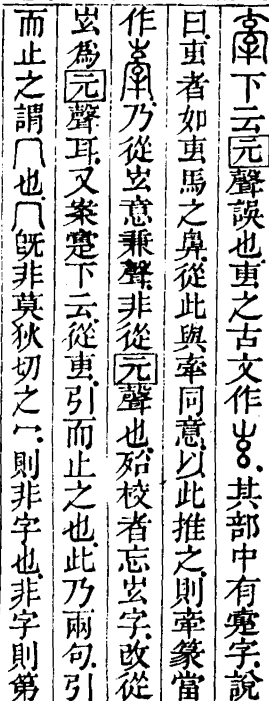 下云元聲誤也叀之古文作其部中有疐字說
曰叀者如叀馬之鼻從此與牽同意以此推之則牽篆當
作乃從意兼聲非從元聲也殆校者忘字改從
爲元聲耳又案疐下云從叀引而止之也此乃兩句引
而止之謂冂也冂旣非莫狄切之冖則非字也非字則第